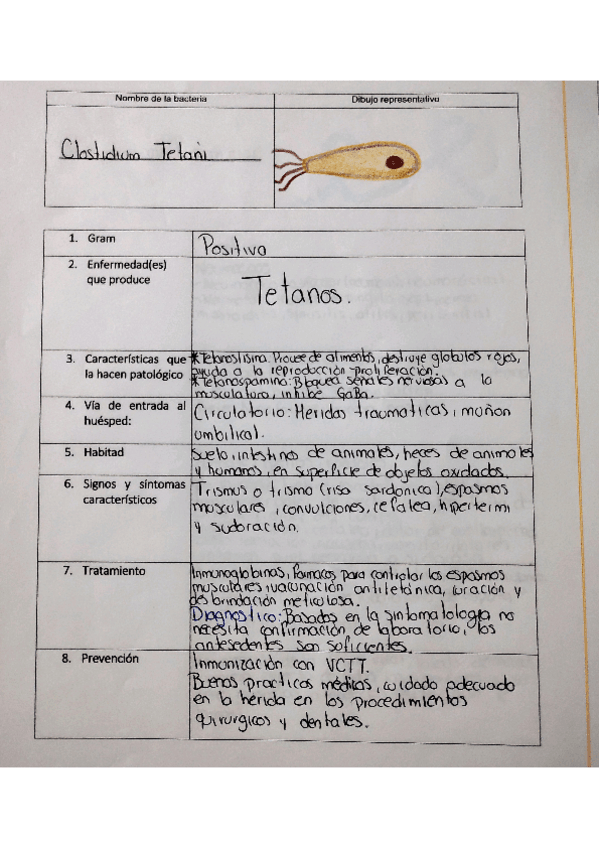 Nombre de la bacteria
Dibujo representativo
Clostidium Tetani
1. Gram
Positivo
2. Enfermedad(es)
que produce
Tetanos.
3. Características que
la hacen patológico
*Tetanoslisina: Provee de alimentos, destruye globulos rojos,
ayuda a la reproducción-proliferación.
*Tetanospamina: Bloquea señales nerviosas a la
musculatura, inhibe GaBa.
4. Vía de entrada al
huésped:
Circulatorio: Heridas traumaticas, muñon
umbilical.
5. Habitad
Suelo, intestinos de animales, heces de animales
y humanos, en superficie de objetos oxidados.
6. Signos y síntomas
característicos
Trismus o trismo (risa sardonica), espasmos
musculares, convulciones, cefalea, hipertermi
y sudoración.
7. Tratamiento
Inmunoglobinas, Farmacos para controlar los espasmos
musculares, vacunación antitetánica, curación y
desbrindación meticulosa.
Diagnostico: Basados en la sintomatologia no
necesita confirmación de laboratorio, los
antesedentes son suficientes.
8. Prevención
Inmunización con VCTT.
Buenas practicas médicas, cuidado adecuado
en la herida en los procedimientos
quirurgicos y dentales.